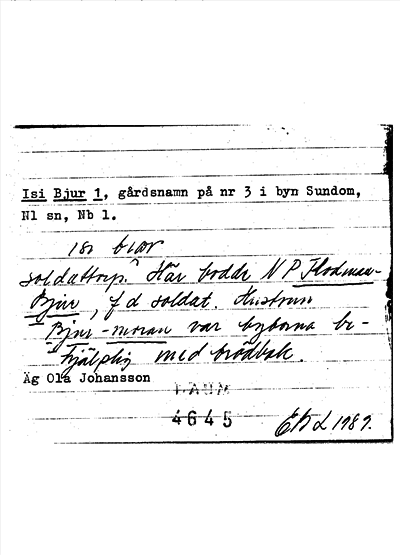 Isi Bjur 1, gårdsnamn på nr 3 i byn Sundom,
Nl sn, Nb 1.
isi
soldattorp. Här bodde N P Flodman-
Bjur, f d soldat. Hustrun
"Bjur-moran" var byborna be-
hjälplig med brödbak.
Äg Ola Johansson
DAUM
4645
EBL 1989.